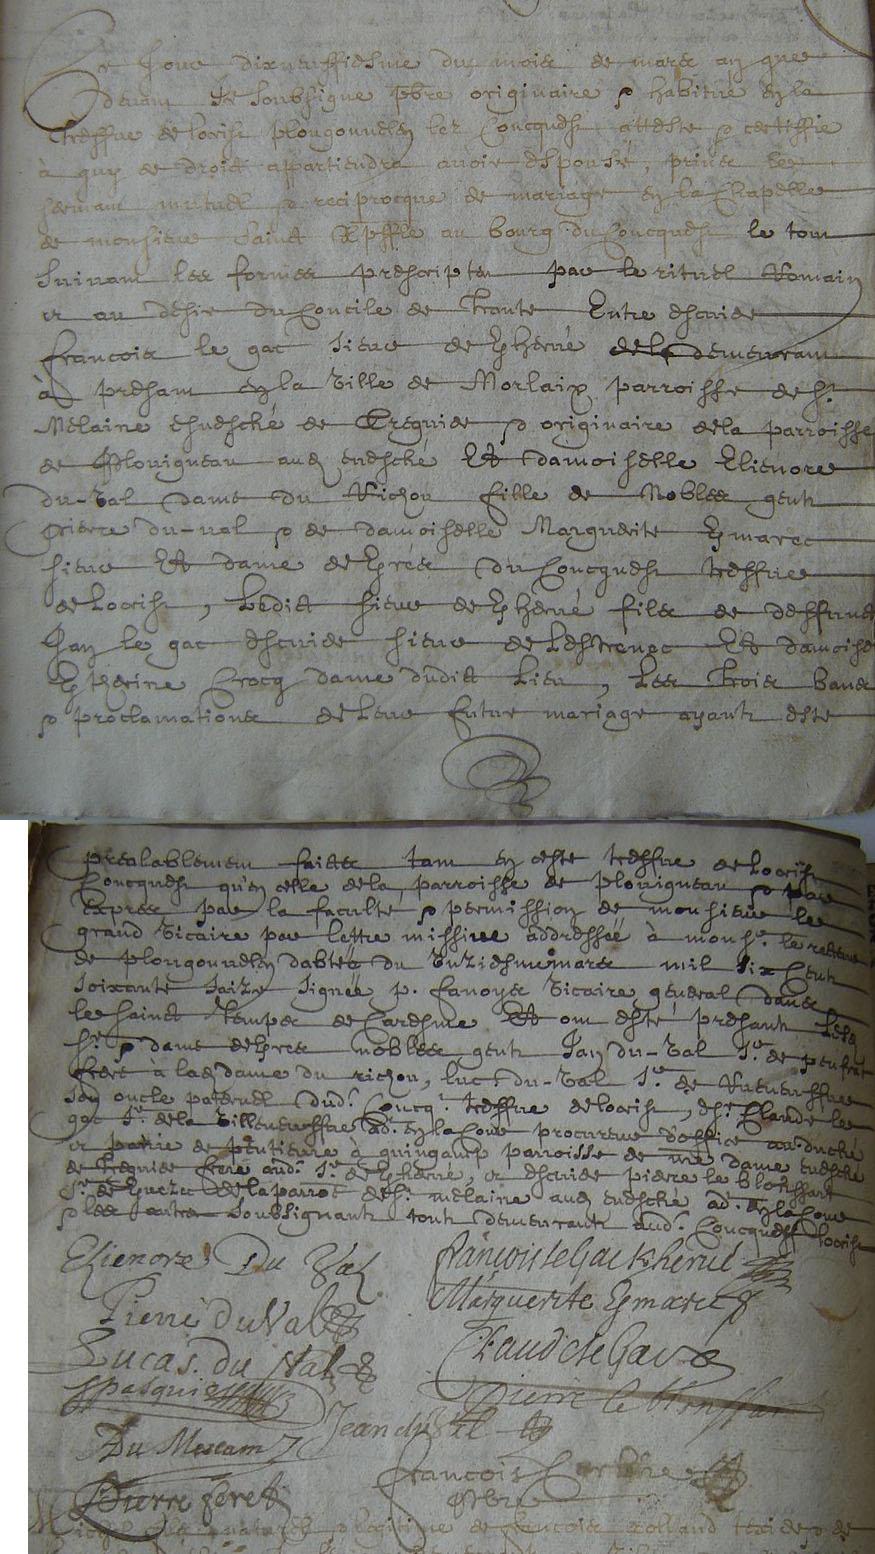 Ce Jour dixneuffiesme du mois de mars an que
devant Je Soubsigne pbre originaire & habitué en la
treffve de locrist plougonvelen lez Concquest atteste & certiffie
à quy de droict appartiendra avoir espousé, prins le
sermant mutuel & reciprocque de mariage en la Chapelle
de monsieur Sainct Xpffle au bourg du Concquest le tout
Suivant les formes prescriptes par le rituel Romain
et au desir du Concile de Trante Entre escuier
francois le gac Sieur de Khervé demeurant
à presant en la Ville de Morlaix parroisse de St
Melaine Evesché de Treguier & originaire de la parroisse
de Plouigneau aud evesché Et damoiselle Elienore
du-Val dame du Richou fille de Nobles gents
Pierre du-val & de damoiselle Marguerite Kmarec
sieur Et dame de Kpres du Concquest treffve
de Locrist, Ledict sieur de Khervé fils de deffunct
Jan le gac escuier sieur de Lestrenec Et damoise
Catherine Crocq dame dudict Lieu, Les Trois bans
& proclamations de Leur futur mariage ayants esté
prealablement faicts tant en ceste treffve de Locrist
Concquest qu'en celle de la parroisse de plouigneau & par
expres par la faculté & permission de monsieur le
grand Vicaire par lettre missive addressée à monsr le recteur
de plougonvelen dabtée du Unziesme mars mil Six Cent
Soixante Saize Signée p. Vicaire général dans
le Sainct Temps de Caresme Et ont esté presants Lesd
Sr & dame de Kpres nobles gents Jan du-Val Sr de
frere à lad dame du richou, luc du-Val Sr de
son oncle paternel dud. Concqt treffve de locrist, esr. Claude le
gac Sr de la Villeneuffve ad. en la Cour procureur d'office au duché
et pairie de pentieure à guingamp parroisse de nre dame evesché
de treguier frere aud. Sr de Khervé, et escuier pierre le
Sr de de la parrose de St melaine aud evesché ad. en la Cour
& les autres Soubsignants touts demeurants aud. Concquest locrist
Elienore Du Val francois le Gac Kherué
Pierre du Val Marguerite Kmarec
Lucas du Val Claude le Gac
Pasquier Pierre le
Jean du Val
Du Mescam
Pierre feret francois
Pbre
legitime de francois rolland & de